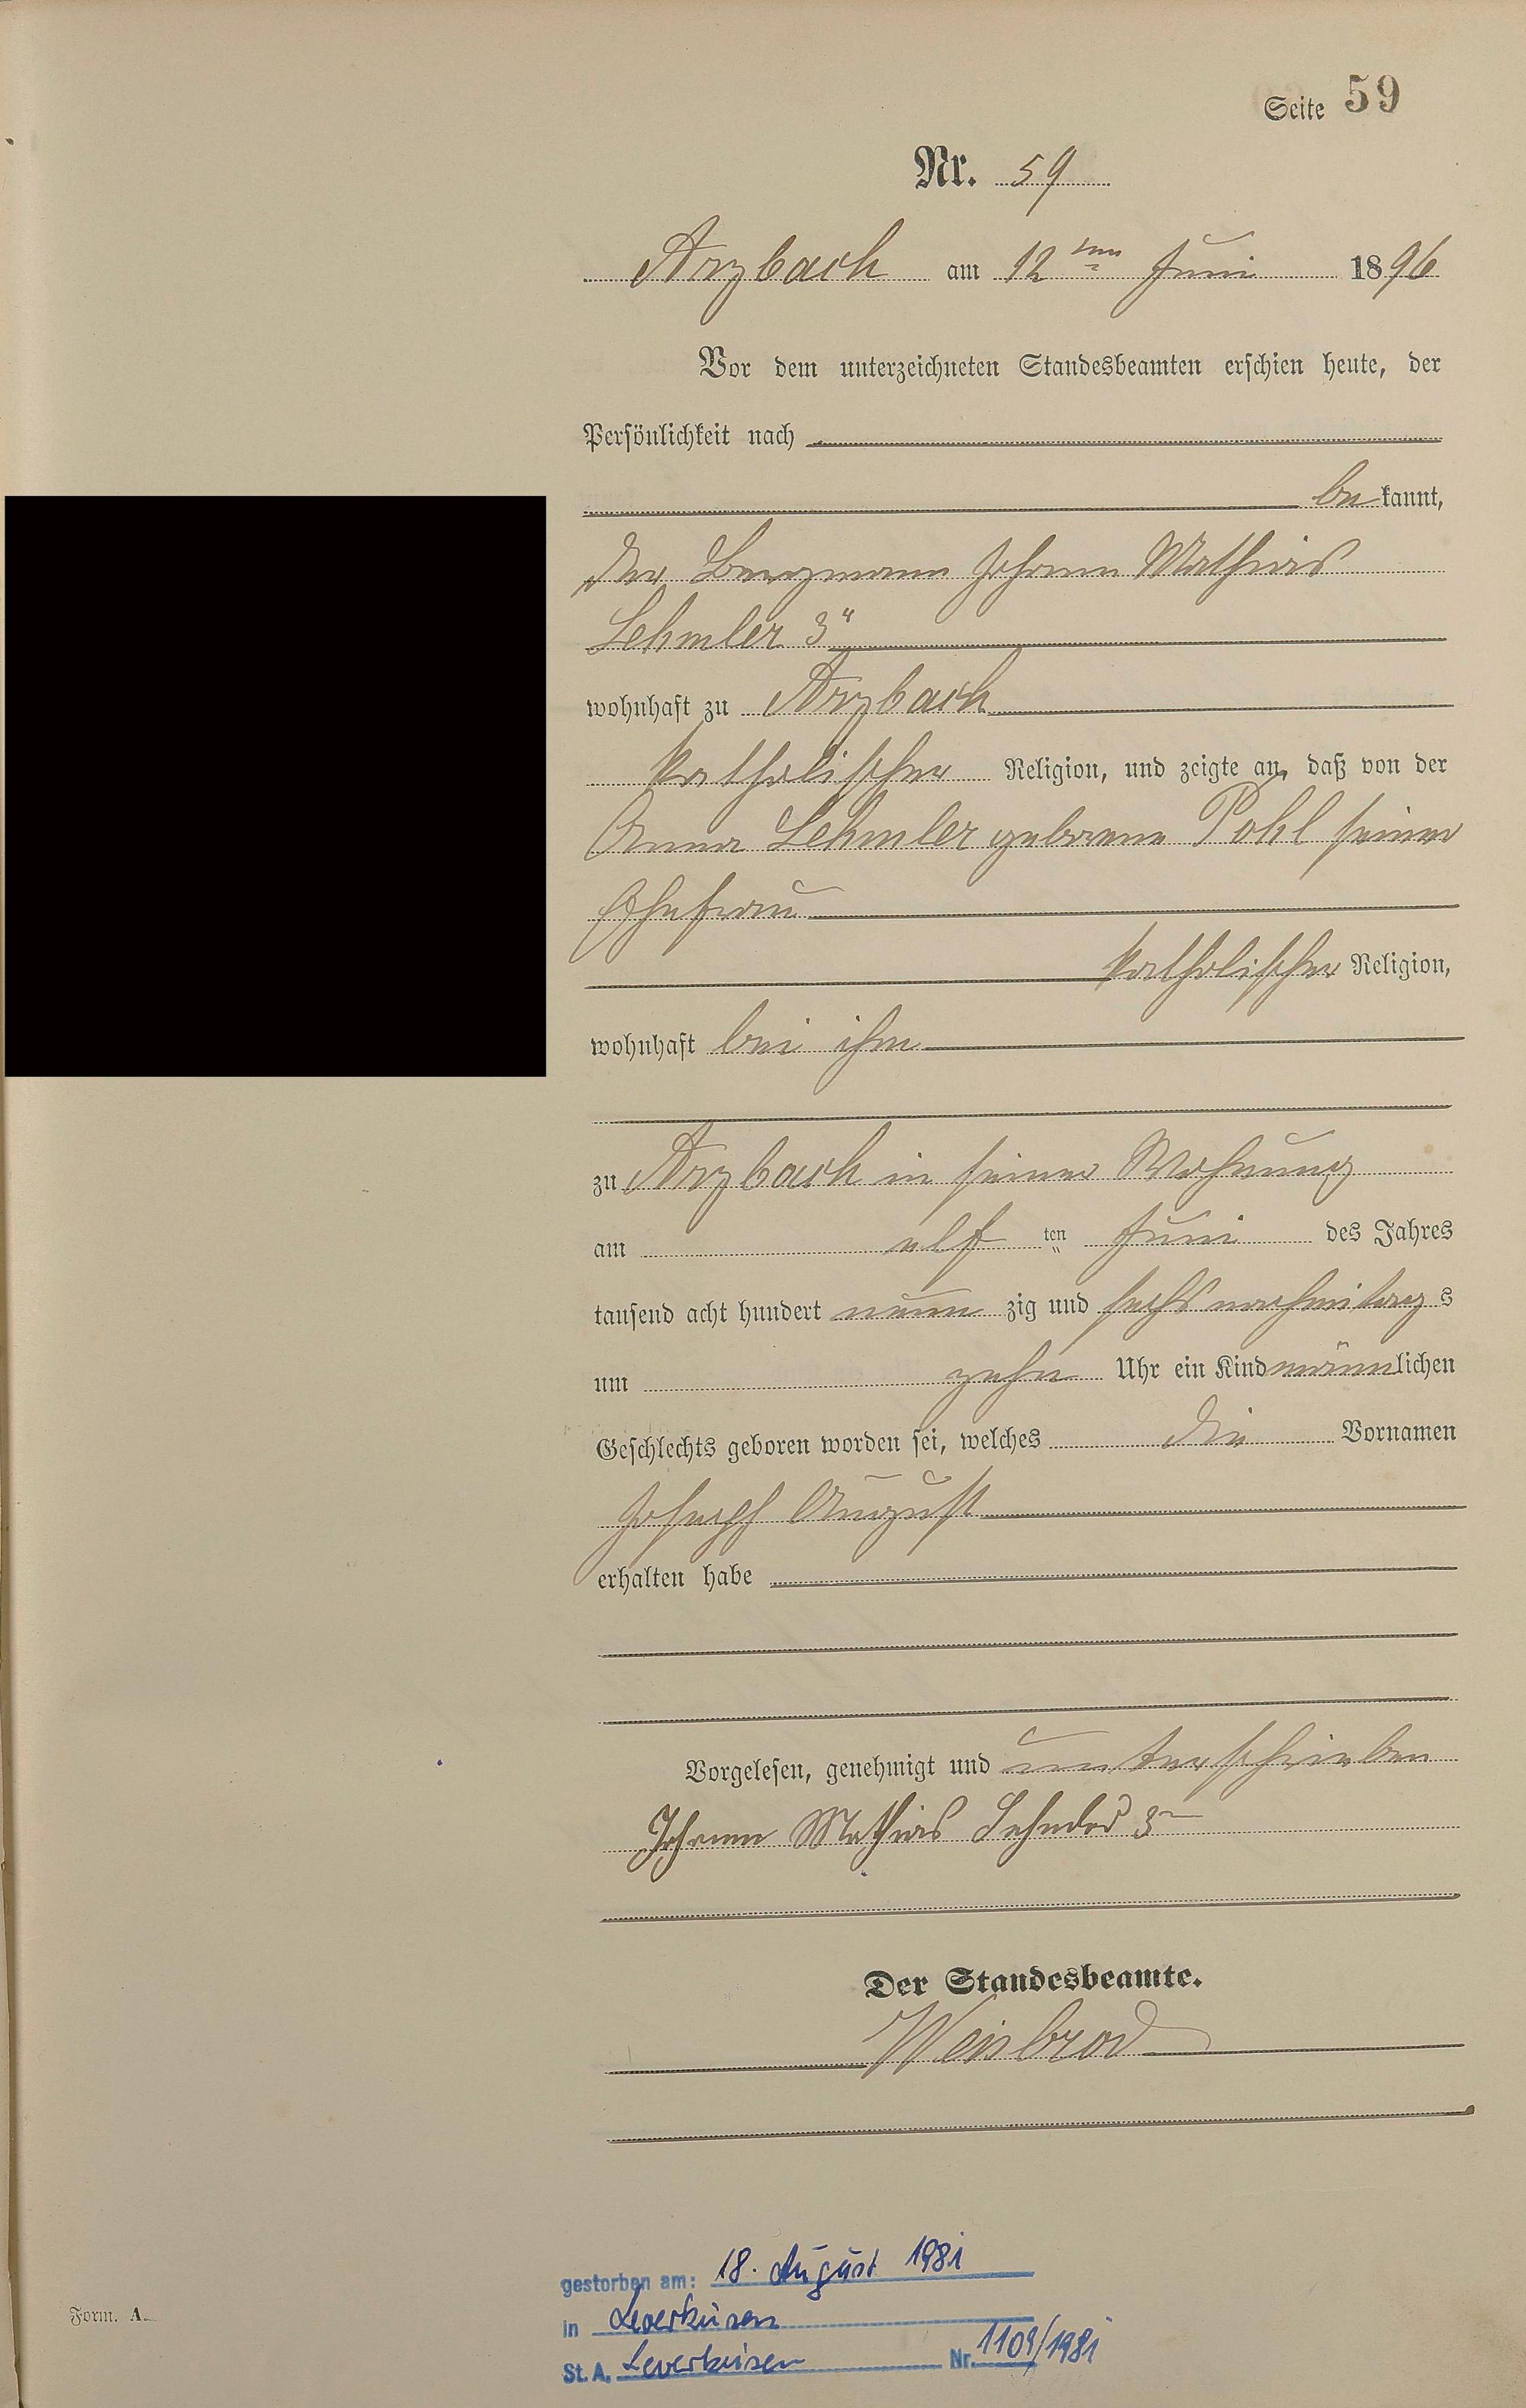 Seite 59
Nr. 59
Arzbach am 12ten Juni 1896
Vor dem unterzeichneten Standesbeamten erschien heute, der
Persönlichkeit nach
bekannt,
der Bergmann Johann Mathias
Lehmler 3"
wohnhaft zu Arzbach
katholischer Religion, und zeigte an, daß von der
Anna Lehmler geborene Pohl seiner
Ehefrau
katholischer Religion,
wohnhaft bei ihm
zu Arzbach in seiner Wohnung
am elf ten Juni des Jahres
tausend acht hundert neun zig und sechs nachmittags
um zehn Uhr ein Kind männlichen
Geschlechts geboren worden sei, welches die Vornamen
Joseph August
erhalten habe
Vorgelesen, genehmigt und unterschrieben
Johann Mathias Lehmler 3
Der Standesbeamte.
Weisbrod
gestorben am: 18. August 1981
in Leverkusen
St.A. Leverkusen Nr. 1109/1981
Form. A.